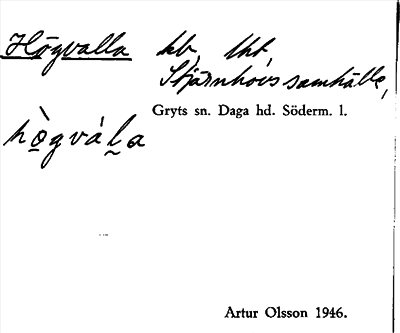 Högvalla hb, lht,
Stjärnhovs samhälle,
Gryts sn. Daga hd. Söderm. l.
hò̲gváḻa
Artur Olsson 1946.